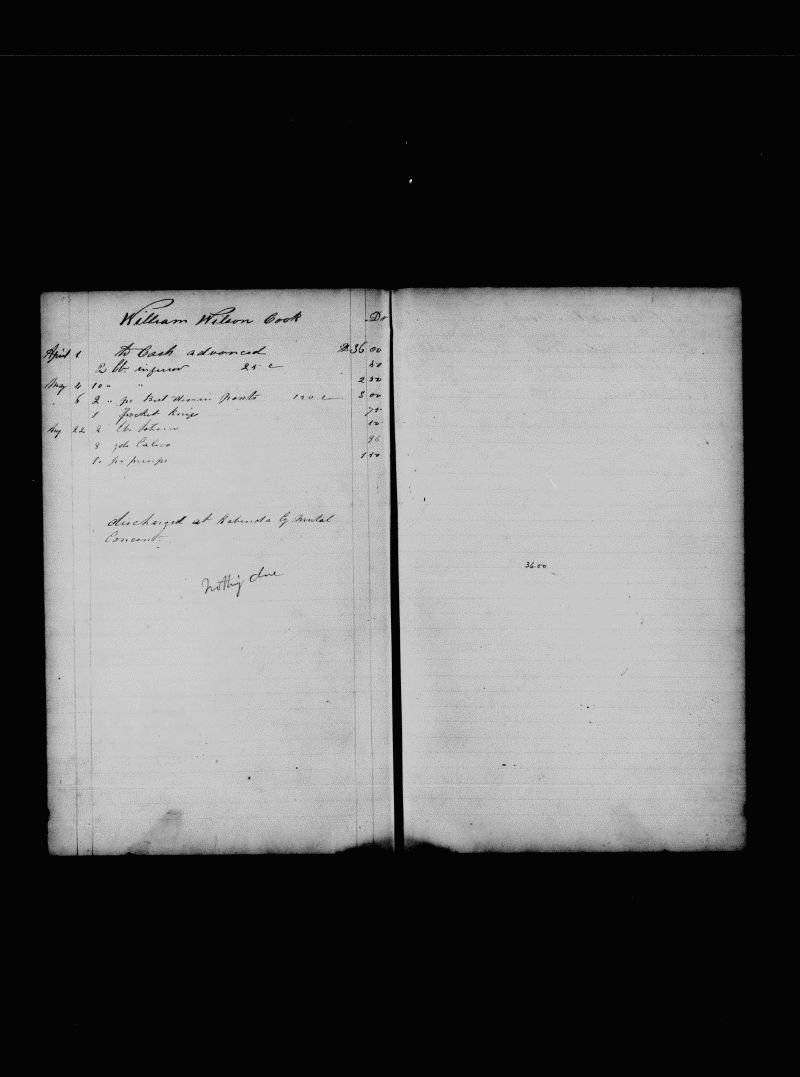 William Wilson Cook Dr
April 1 To Cash advanced D 36 00
2 lb inferior 25 c 50
May 4 10 " " 2 50
" 6 2 " pr Best Pants 150 c 3 00
1 pocket Knife 75
Aug 22 2 lb 50
8 yds Calico 96
1 pr pumps 1 50
discharged at Kabenda by Mutal
Concent.
Nothig due
36.00